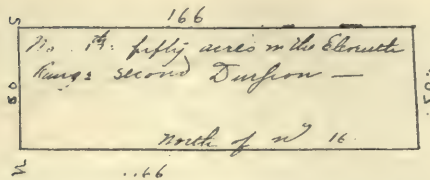 S 166
No. fifty acres in the Eleventh
Range second Division —
80
80
North of No 16.
N 166